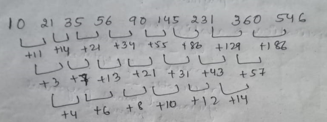 10 21 35 56 90 145 231 360 546
+11 +14 +21 +34 +55 +86 +129 +186
+3 +7 +13 +21 +31 +43 +57
+4 +6 +8 +10 +12 +14